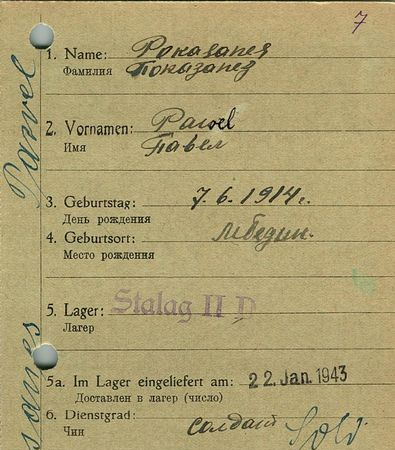 7
1. Name: Pokasanes
Фамилия Показанез
2. Vornamen: Pawel
Имя Павел
3. Geburtstag: 7.6.1914 г.
День рождения
4. Geburtsort: Лебедин.
Место рождения
5. Lager: Stalag II D
Лагерь
5a. Im Lager eingeliefert am: 22. Jan. 1943
Доставлен в лагерь (число)
6. Dienstgrad: солдат Sold.
Чин
Pawel